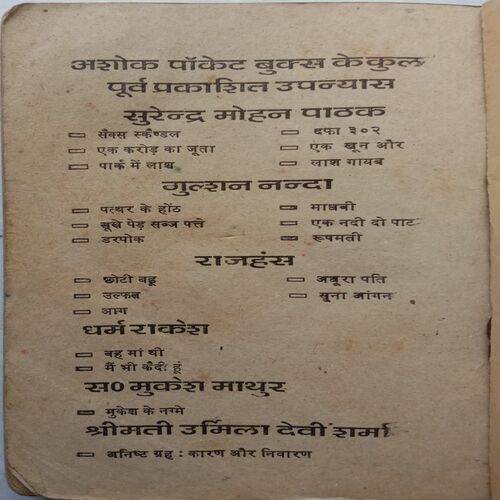 अशोक पॉकेट बुक्स के कुल
पूर्व प्रकाशित उपन्यास
सुरेन्द्र मोहन पाठक
सैक्स स्कैण्डल दफा ३०२
एक करोड़ का जूता एक खून और
पार्क में लाश लाश गायब
गुल्शन नन्दा
पत्थर के होंठ माधवी
सूखे पेड़ सब्ज पत्ते एक नदी दो पाट
डरपोक रूपमती
राजहंस
छोटी बहू अधूरा पति
उल्फत सूना आंगन
आग
धर्म राकेश
वह मां थी
मैं भी कैदी हूं
स० मुकेश माथुर
मुकेश के नग्मे
श्रीमती उर्मिला देवी शर्मा
अनिष्ट ग्रह : कारण और निवारण